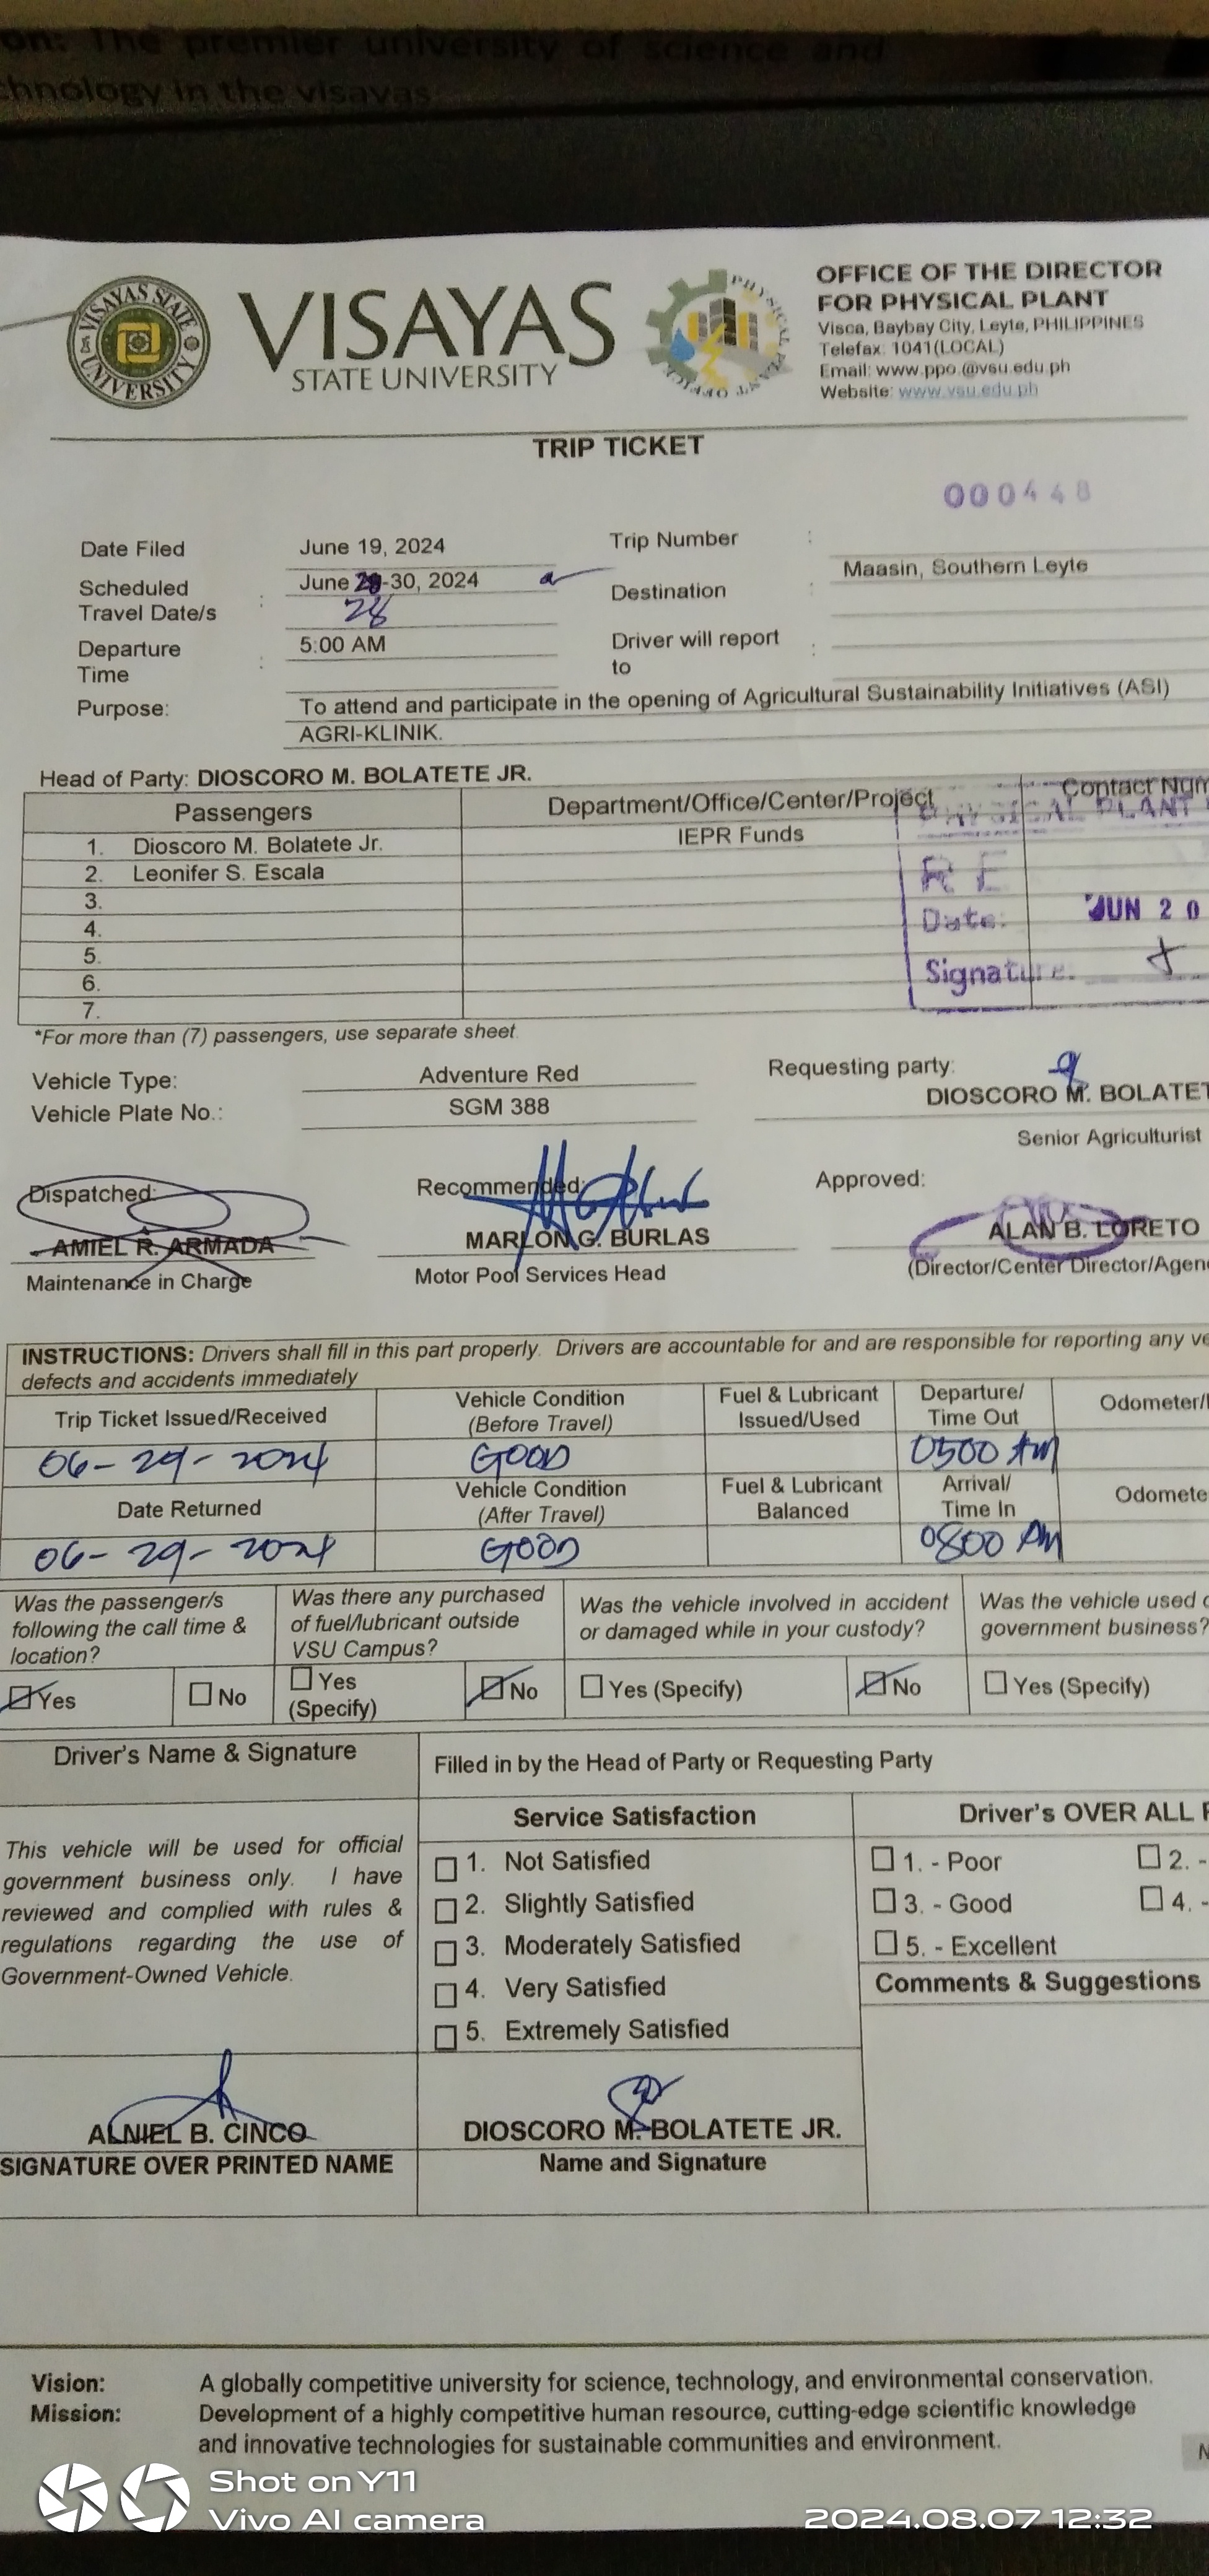 on: The premier university of science and
chnology in the visayas
VISAYAS STATE UNIVERSITY
VISAYAS
STATE UNIVERSITY
PHYSICAL PLANT OFFICE
OFFICE OF THE DIRECTOR
FOR PHYSICAL PLANT
Visca, Baybay City, Leyte, PHILIPPINES
Telefax: 1041(LOCAL)
Email: www.ppo.@vsu.edu.ph
Website: www.vsu.edu.ph
TRIP TICKET
000448
Date Filed June 19, 2024 Trip Number :
Scheduled Travel Date/s : June -30, 2024 28 Destination : Maasin, Southern Leyte
Departure Time : 5:00 AM Driver will report to :
Purpose: To attend and participate in the opening of Agricultural Sustainability Initiatives (ASI)
AGRI-KLINIK.
Head of Party: DIOSCORO M. BOLATETE JR.
Passengers Department/Office/Center/Project Contact Num
1. Dioscoro M. Bolatete Jr. IEPR Funds
2. Leonifer S. Escala
3.
4.
5.
6.
7.
PHYSICAL PLANT
RE
Date: JUN 20
Signature.
*For more than (7) passengers, use separate sheet.
Vehicle Type: Adventure Red Requesting party:
Vehicle Plate No.: SGM 388 DIOSCORO M. BOLATET
Senior Agriculturist
Dispatched: Recommended: Approved:
AMIEL R. ARMADA MARLON G. BURLAS ALAN B. LORETO
Maintenance in Charge Motor Pool Services Head (Director/Center Director/Agen
INSTRUCTIONS: Drivers shall fill in this part properly. Drivers are accountable for and are responsible for reporting any ve
defects and accidents immediately
Trip Ticket Issued/Received Vehicle Condition (Before Travel) Fuel & Lubricant Issued/Used Departure/ Time Out Odometer/
06-29-2024 GOOD 0500 AM
Date Returned Vehicle Condition (After Travel) Fuel & Lubricant Balanced Arrival/ Time In Odomete
06-29-2024 GOOD 0800 PM
Was the passenger/s following the call time & location? Was there any purchased of fuel/lubricant outside VSU Campus? Was the vehicle involved in accident or damaged while in your custody? Was the vehicle used government business?
Yes No Yes (Specify) No Yes (Specify) No Yes (Specify)
Driver's Name & Signature Filled in by the Head of Party or Requesting Party
Service Satisfaction Driver's OVER ALL
This vehicle will be used for official
government business only. I have
reviewed and complied with rules &
regulations regarding the use of
Government-Owned Vehicle.
1. Not Satisfied
2. Slightly Satisfied
3. Moderately Satisfied
4. Very Satisfied
5. Extremely Satisfied
1. - Poor 2. -
3. - Good 4. -
5. - Excellent
Comments & Suggestions
ALNIEL B. CINCO DIOSCORO M. BOLATETE JR.
SIGNATURE OVER PRINTED NAME Name and Signature
Vision: A globally competitive university for science, technology, and environmental conservation.
Mission: Development of a highly competitive human resource, cutting-edge scientific knowledge
and innovative technologies for sustainable communities and environment.
Shot on Y11
Vivo AI camera
2024.08.07 12:32